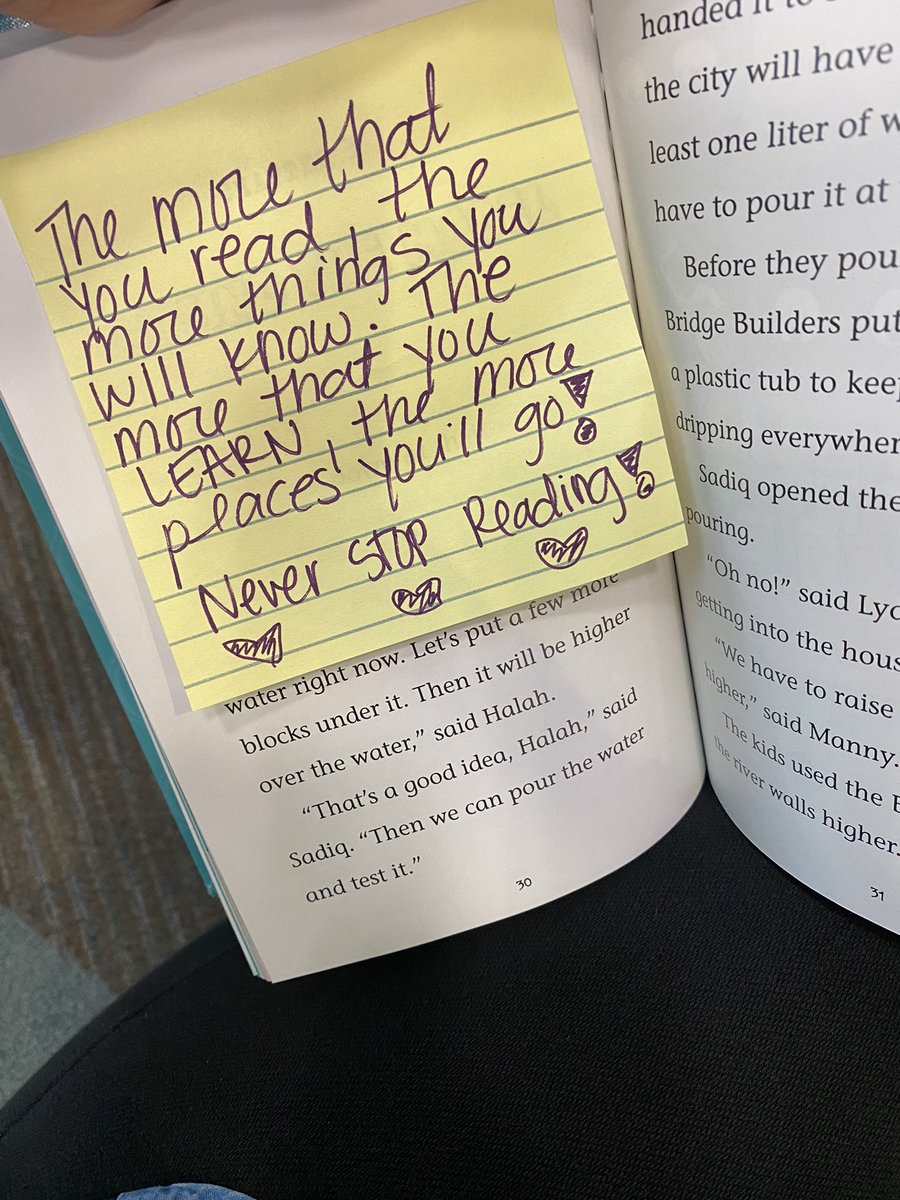 The more that
you read, the
more things you
will know. The
more that you
LEARN, the more
places you'll go!
Never STOP Reading!
water right now. Let's put a few more
blocks under it. Then it will be higher
over the water," said Halah.
"That's a good idea, Halah," said
Sadiq. "Then we can pour the water
and test it."
30
handed it to
the city will have
least one liter of
have to pour it at
Before they
Bridge Builders put
a plastic tub to
dripping
Sadiq opened the
pouring.
"Oh no!" said
getting into the
"We have to raise
higher," said Manny.
The kids used the
the river walls higher.
31